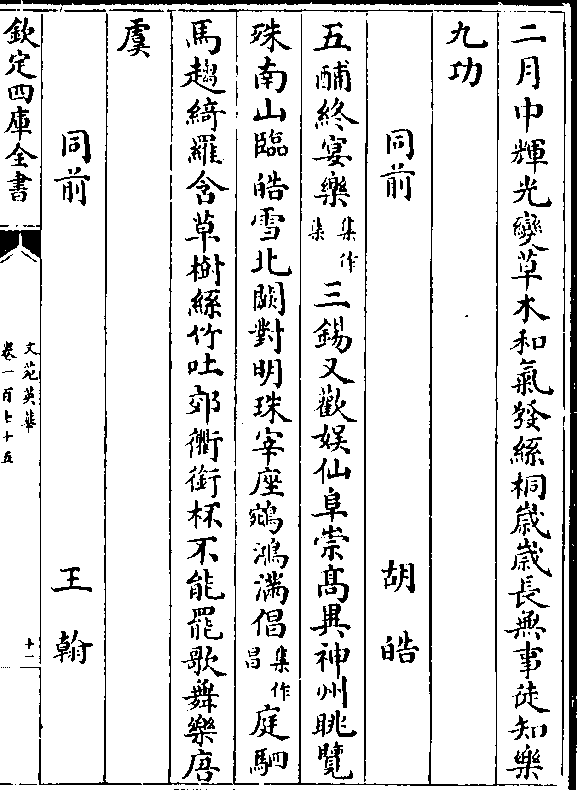 二月巾輝光變草木和氣發絲桐歳歳長無事徒知樂
九功
同前 胡皓
五酺終宴樂集作染三錫又歡娛仙阜崇髙異神州眺覽
殊南山臨皓雪北闕對明珠宰座鵷鴻滿倡集作昌庭駟
馬趨綺羅含草樹絲竹吐郊衢銜杯不能罷歌舞樂唐
虞
同前 王翰
欽定四庫全書
文苑英華
卷一百七十五
十一